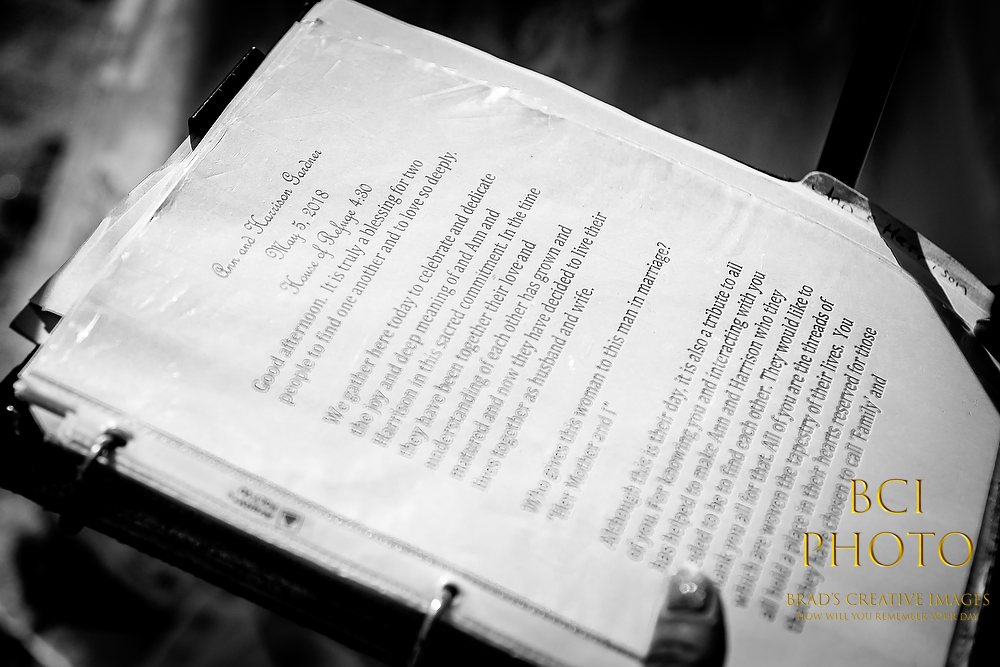 Ann and Harrison Gardner
May 5, 2018
House of Refuge 4:30
Good afternoon. It is truly a blessing for two
people to find one another and to love so deeply.
We gather here today to celebrate and dedicate
the joy and deep meaning of and Ann and
Harrison in this sacred commitment. In the time
they have been together their love and
understanding of each other has grown and
matured and now they have decided to live their
lives together as husband and wife.
Who gives this woman to this man in marriage?
"Her Mother and I"
Although this is their day, it is also a tribute to all
of you for knowing you and interacting with you
has helped to make Ann and Harrison who they
to be to find each other. They would like to
you all for that. All of you are the threads of
which are woven the tapestry of their lives. You
all hold a place in their hearts reserved for those
they chosen to call 'Family' and
BCI
PHOTO
BRAD'S CREATIVE IMAGES
HOW WILL YOU REMEMBER YOUR DAY